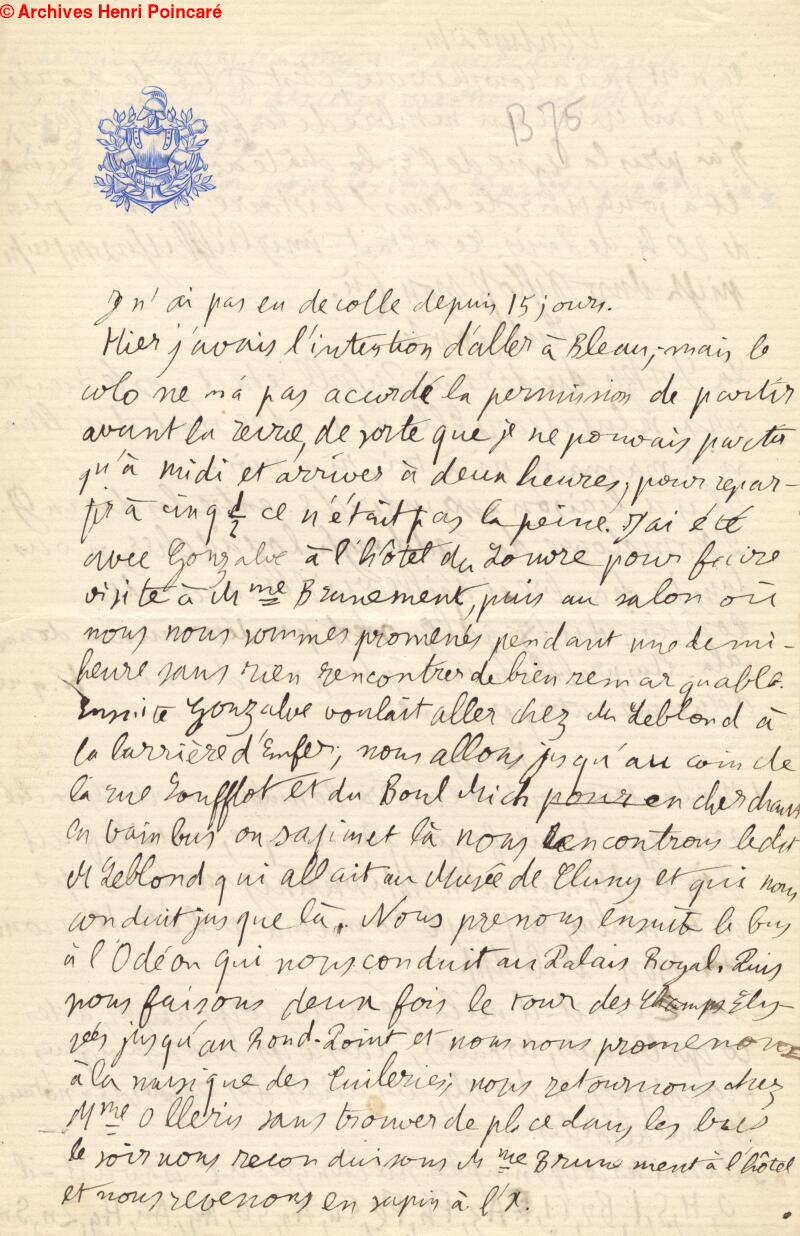 © Archives Henri Poincaré
B 75
Je n'ai pas eu de colle depuis 15 jours.
Hier j'avais l'intention d'aller à Bleau; mais le
colo ne m'a pas accordé la permission de partir
avant la revue, de sorte que je ne pouvais partir
qu'à midi et arriver à deux heures; pour repar-
tir à cinq 1/2 ce n'était pas la peine. J'ai été
avec Gonzalve à l'hôtel du Louvre pour faire
visite à Mme Brunement, puis au salon où
nous nous sommes promenés pendant une demi-
heure sans rien rencontrer de bien remarquable.
Ensuite Gonzalve voulait aller chez M Leblond à
la barrière d'Enfer; nous allons jusqu'au coin de
la rue Soufflot et du Boul Mich pour en cherchant
en vain bus ou sapin et là nous rencontrons ledit
M Leblond qui allait au Musée de Cluny et qui nous
conduit jusque là. Nous prenons ensuite le bus
à l'Odéon qui nous conduit au Palais Royal. Puis
nous faisons deux fois le tour des Champs Ely-
sées jusqu'au Rond-Point et nous nous promenons
à la musique des Tuileries; nous retournons chez
Mme Olleris sans trouver de place dans les bus
le soir nous reconduisons Mme Brunement à l'hôtel
et nous revenons en sapin à l'X.